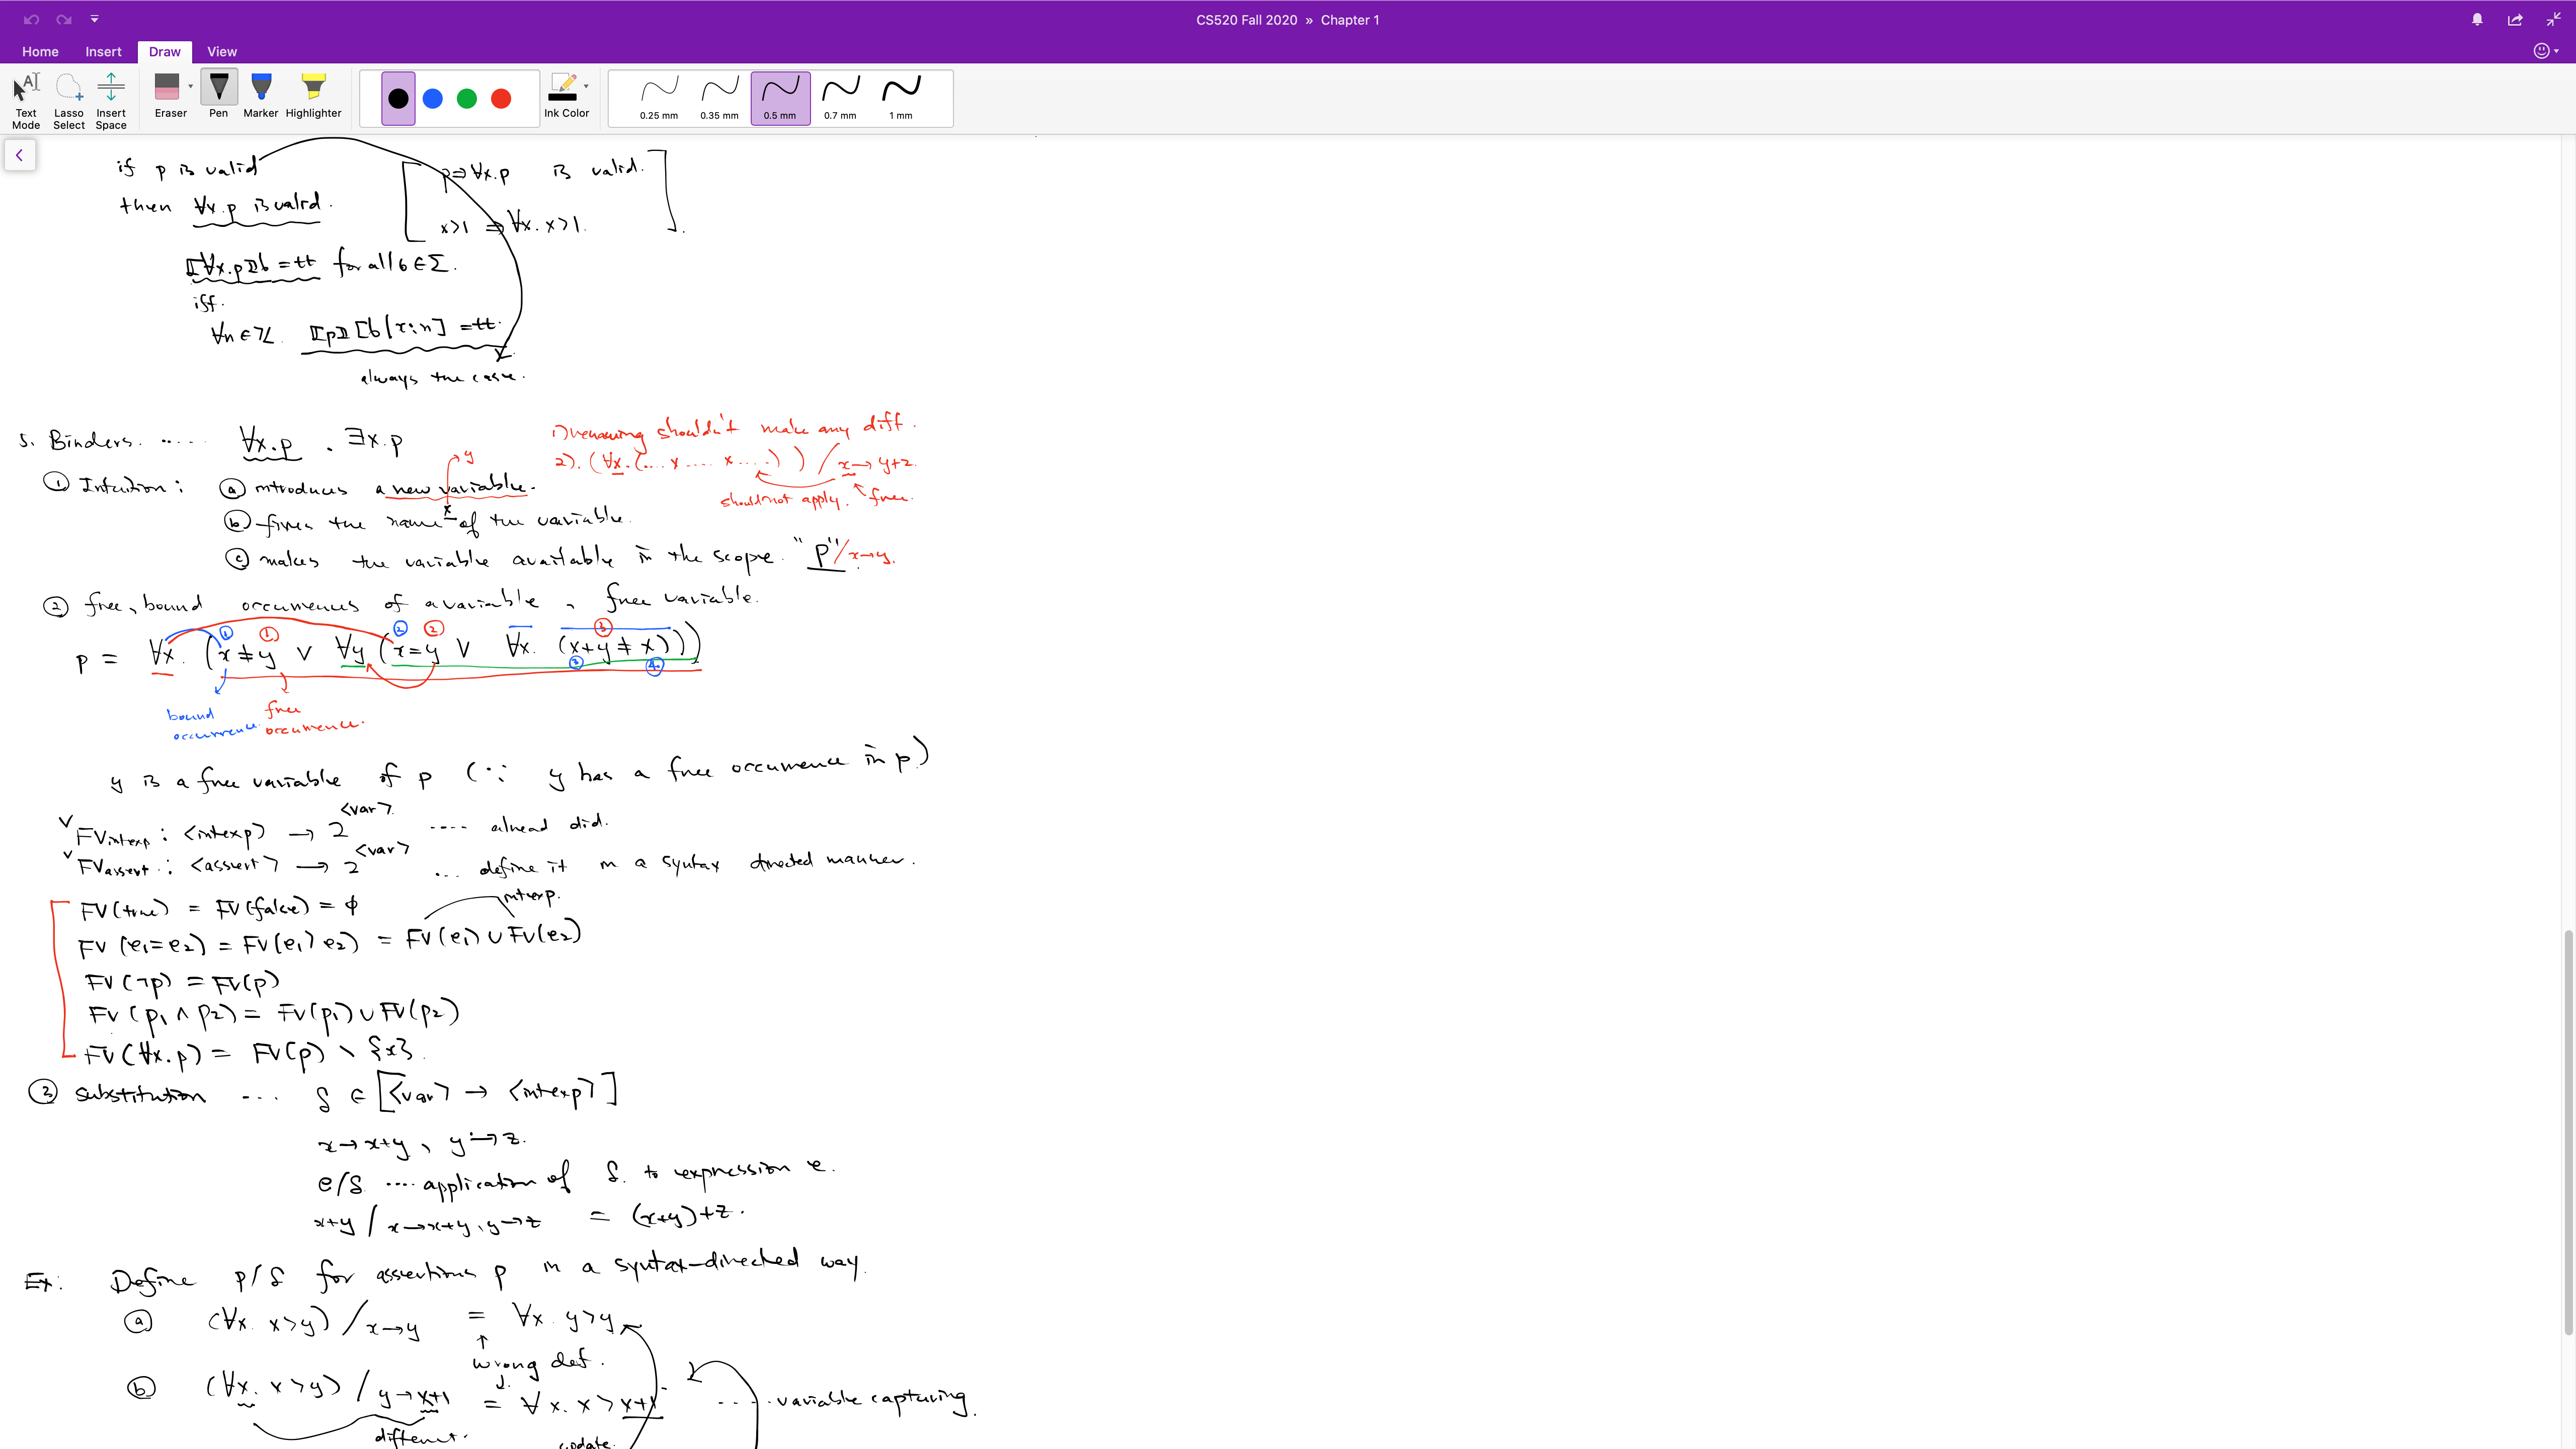 CS520 Fall 2020 » Chapter 1
Home Insert Draw View
Text Mode
Lasso Select
Insert Space
Eraser
Pen
Marker
Highlighter
Ink Color
0.25 mm
0.35 mm
0.5 mm
0.7 mm
1 mm
if p is valid
then ∀x.p is valid.
p ⇒ ∀x.p is valid.
x>1 ⇒ ∀x. x>1.
⟦∀x.p⟧6 = tt for all 6 ∈ Σ.
iff.
∀n ∈ ℤ. ⟦p⟧[6|x:n] = tt.
always the case.
5. Binders. ..... ∀x.p . ∃x.p
1) renaming shouldn't make any diff.
2). (∀x.(.... x ..... x .....)) / x→y+z.
should not apply. free.
① Intuition: ⓐ introduces a new variable.
y
ⓑ fixes the name x of the variable.
ⓒ makes the variable available in the scope. "p" / x→y.
② free, bound occurrences of a variable, free variable.
① ① ② ② ③
p = ∀x. (x≠y ∨ ∀y (x=y ∨ ∀x. (x+y ≠ x)))
③ ④
bound occurrence.
free occurrence.
y is a free variable of p (∵ y has a free occurrence in p)
∨ FVintexp : <intexp> → 2^<var> .... alread did.
∨ FVassert : <assert> → 2^<var> ... define it in a syntax directed manner.
intexp.
FV(true) = FV(false) = ϕ
FV(e1=e2) = FV(e1>e2) = FV(e1) ∪ FV(e2)
FV(¬p) = FV(p)
FV(p1 ∧ p2) = FV(p1) ∪ FV(p2)
FV(∀x.p) = FV(p) \ {x}.
③ substitution ... δ ∈ [<var> → <intexp>]
x→x+y, y→z.
e/δ .... application of δ. to expression e.
x+y / x→x+y, y→z = (x+y)+z.
Ex: Define p/δ for assertions p in a syntax-directed way.
ⓐ (∀x. x>y) / x→y = ∀x. y>y
↑
wrong def.
↓
ⓑ (∀x. x>y) / y→x+1 = ∀x. x>x+1 .... variable capturing.
different.
update.